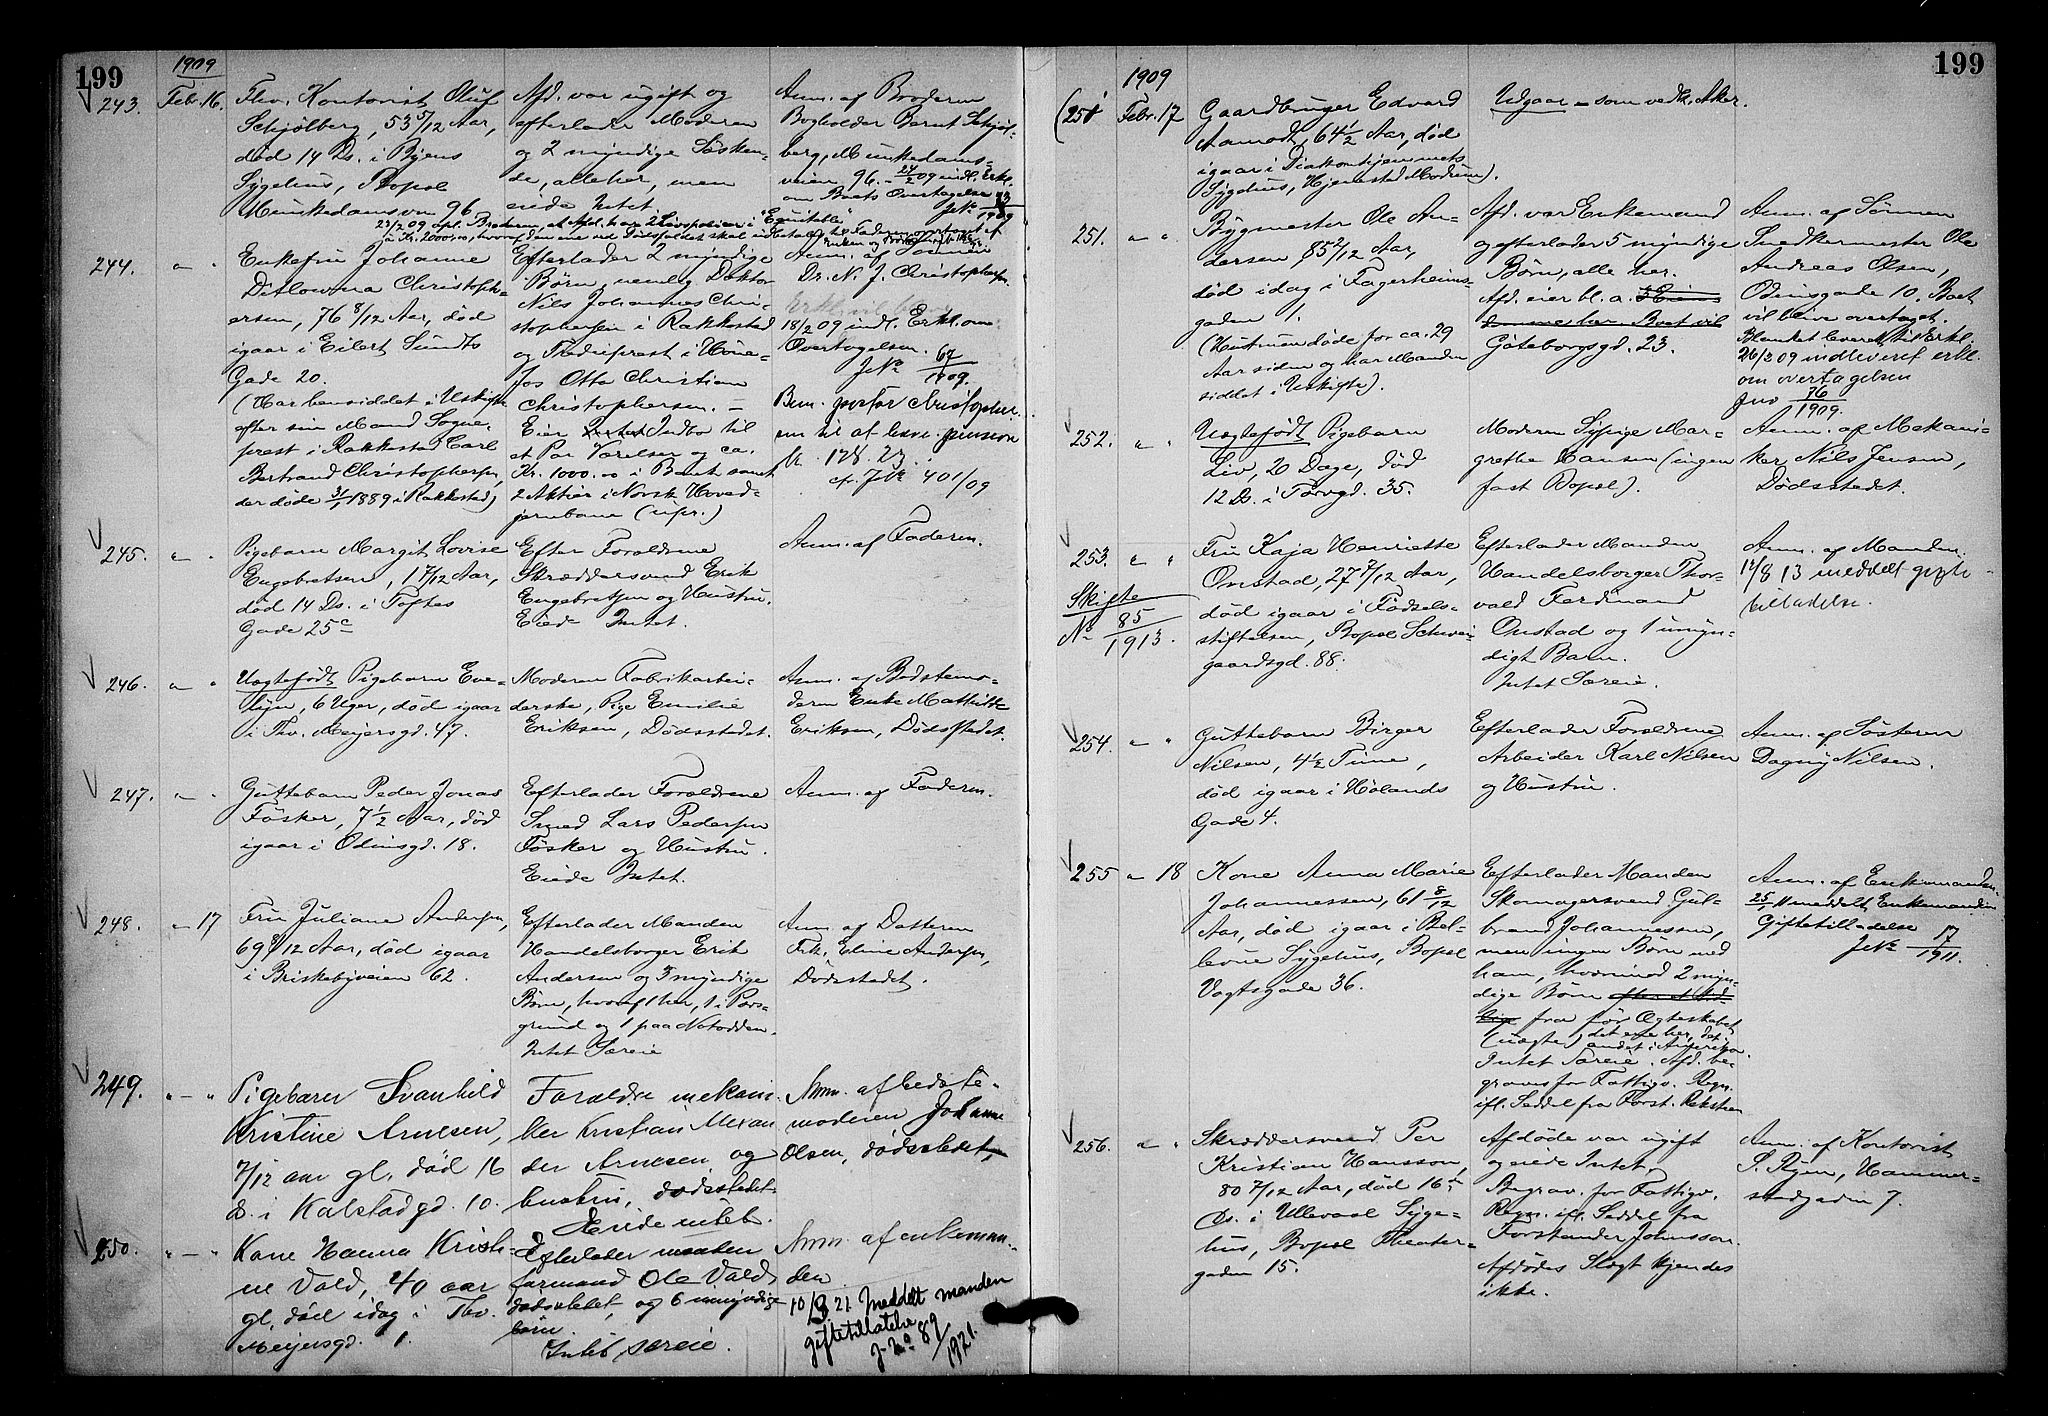 199
1909
243. Febr. 16. Fhv. Kontorist Oluf
Schjølberg, 53 5/12 Aar,
død 14 Ds. i Byens
Sygehus, Bopæl
Munkedamsvn 96.
Afd. var ugift og
efterlader Moderen
og 2 myndige Søsken-
de, alle her, men
eiede Intet.
Anm. af Broderen
Bogholder Bernt Schjøl-
berg, Munkedams-
veien 96. - 24/2 09 indl. Erkl.
om Boets Overtagelse
JNo 73/1909
23/2 09 opl. Broderen, at Afd. har 2 Livspoliser i "Equitable"
à Kr. 2000.00, hvoraf den ene ved Dødsfaldet skal udbetales til
244. " " Enkefru Johanne
Ditlovina Christoph-
ersen, 76 8/12 Aar, død
igaar i Eilert Sundts
Gade 20.
(Har hensiddet i Uskifte
efter sin Mand Sogne-
prest i Rakkestad Carl
Bertrand Christophersen,
der døde 3/1 1889 i Rakkestad)
Efterlader 2 myndige
Børn, nemlig Doktor
Nils Johannes Chri-
stophersen i Rakkestad
og Frederiprest i Høne-
fos Otto Christian
Christophersen. -
Eier Indbo til
et Par Værelser og ca.
Kr. 1000.00 i Bank samt
2 Aktier i Norsk Hoved-
jernbane (upr.)
Anm. af Sønnen
Dr. N. J. Christophersen.
Erkl. vil
18/2 09 indl. Erkl. om
Overtagelsen.
JNo 67/1909.
Bem. pastor Christopher-
sen til at hæve pension
kr. 128.23.
cfr. JNo 401/09
245. " " Pigebarn Margit Lovise
Engebretsen, 1 7/12 Aar,
død 14 Ds. i Toftes
Gade 25c
Efter Forældrene
Skræddersvend Erik
Engebretsen og Hustru.
Eiede Intet.
Anm. af Faderen.
246. " " Uægtefødt Pigebarn Eve-
lyn, 6 Uger, død igaar
i Thv. Meyersgd. 47.
Moderen Fabrikarbei-
derske, Pige Emilie
Eriksen, Dødsstedet.
Anm. af Bedstemo-
deren Enke Mathilde
Eriksen, Dødsstedet.
247. " " Guttebarn Peder Jonas
Føsker, 7 1/2 Aar, død
igaar i Odinsgd. 18.
Efterlader Forældrene
Smed Lars Pedersen
Føsker og Hustru.
Eiede Intet.
Anm. af Faderen.
248. " 17 Fru Juliane Andersen,
69 9/12 Aar, død igaar
i Briskebyveien 62.
Efterlader Manden
Handelsborger Erik
Andersen og 3 myndige
Børn, hvoraf 1 her, 1 i Pors-
grund og 1 paa Notodden.
Intet Særeie
Anm. af Datteren
Frk. Eline Andersen,
Dødsstedet.
249. " " Pigebarn Svanhild
Kristine Arnesen,
7/12 aar gl. død 16
ds. i Kalstadgd. 10.
Forældre mekani-
ker Kristian Alexan
der Arnesen og
hustru, dødsstedet
Eiede intet.
Anm. af bedste-
moderen Johanne
Olsen, dødsstedet,
250. " " Kone Hanna Kristi-
ne Vold, 40 aar
gl, død idag i Thv.
Meyersgd. 1.
Efterlader manden
formand Ole Vold,
dødsstedet, og 6 umyndige
børn.
Intet særeie.
Anm. af enkeman-
den
10/8 21 meddelt manden
giftetilladelse
J-No 89/1921.
199
1909
(251 Febr. 17 Gaardbruger Edvard
Aamodt, 64 1/2 Aar, død
igaar i Diakonhjemmets
Sygehus, Hjemsted Modum).
Udgaar - som vedk. Aker.
251. " " Bygmester Ole An-
dersen 85 2/12 Aar,
død idag i Fagerheims-
gaden 1.
(Hustruen døde for ca. 29
Aar siden og har Manden
siddet i Uskifte).
Afd. var Enkemand
og efterlader 5 myndige
Børn, alle her.
Afd. eier bl. a. 3 Eien-
domme her. Boet vil
Göteborgsgd. 23.
Anm. af Sønnen
Snedkermester Ole
Andreas Olsen,
Odinsgade 10. Boet
vil blive overtaget.
Blanket leveret til Erkl.
26/2 09 indleveret erkl.
om overtagelsen
Jno 76/1909.
252. " " Uægtefødt Pigebarn
Liv, 20 Dage, død
12 Ds. i Torvgd. 35.
Moderen Sypige Mar-
grethe Hansen (ingen
fast Bopæl).
Anm. af Mekani-
ker Nils Jensen,
Dødsstedet.
253. " " Fru Kaja Henriette
Onstad, 27 7/12 Aar,
død igaar i Fødsels-
stiftelsen, Bopæl Schwei-
gaardsgd. 88.
Skifte
No 85/1913.
Efterlader Manden
Handelsborger Thor-
vald Ferdinand
Onstad og 1 umyn-
digt Barn.
Intet Særeie.
Anm. af Manden.
12/8 13 meddelt gifte-
tilladelse.
254. " " Guttebarn Birger
Nilsen, 4 1/2 Time,
død igaar i Hølands
Gade 4.
Efterlader Forældrene
Arbeider Karl Nilsen
og Hustru.
Anm. af Søsteren
Dagny Nilsen.
255 " 18 Kone Anna Marie
Johannessen, 61 8/12
Aar, død igaar i Bel-
levue Sygehus, Bopæl
Vogtsgade 36.
Efterlader Manden
Skomagersvend Gul-
brand Johannessen,
men ingen Børn med
ham, hvorimod 2 myn-
dige Børn
fra før Ægteskabet
(uægte) det ene her, det
andet i Amerika.
Intet Særeie. Afd. be-
graves for Fattigv. Regn.
ifl. Seddel fra Forst. Rekstien
Anm. af Enkemanden.
meddelt Enkemanden
Giftetilladelse
JNo 17/1911.
256. " " Skræddersvend Per
Kristian Hansson,
80 7/12 Aar, død 16de
Ds. i Ullevaal Syge-
hus, Bopæl Theater-
gaden 15.
Afdøde var ugift
og eiede Intet.
Begrav. for Fattigv.
Regn. ifl. Seddel fra
Forstander Johnsson.
Afdødes Slægt kjendes
ikke.
Anm. af Kontorist
S. Ryen, Hammer-
stadgaden 7.